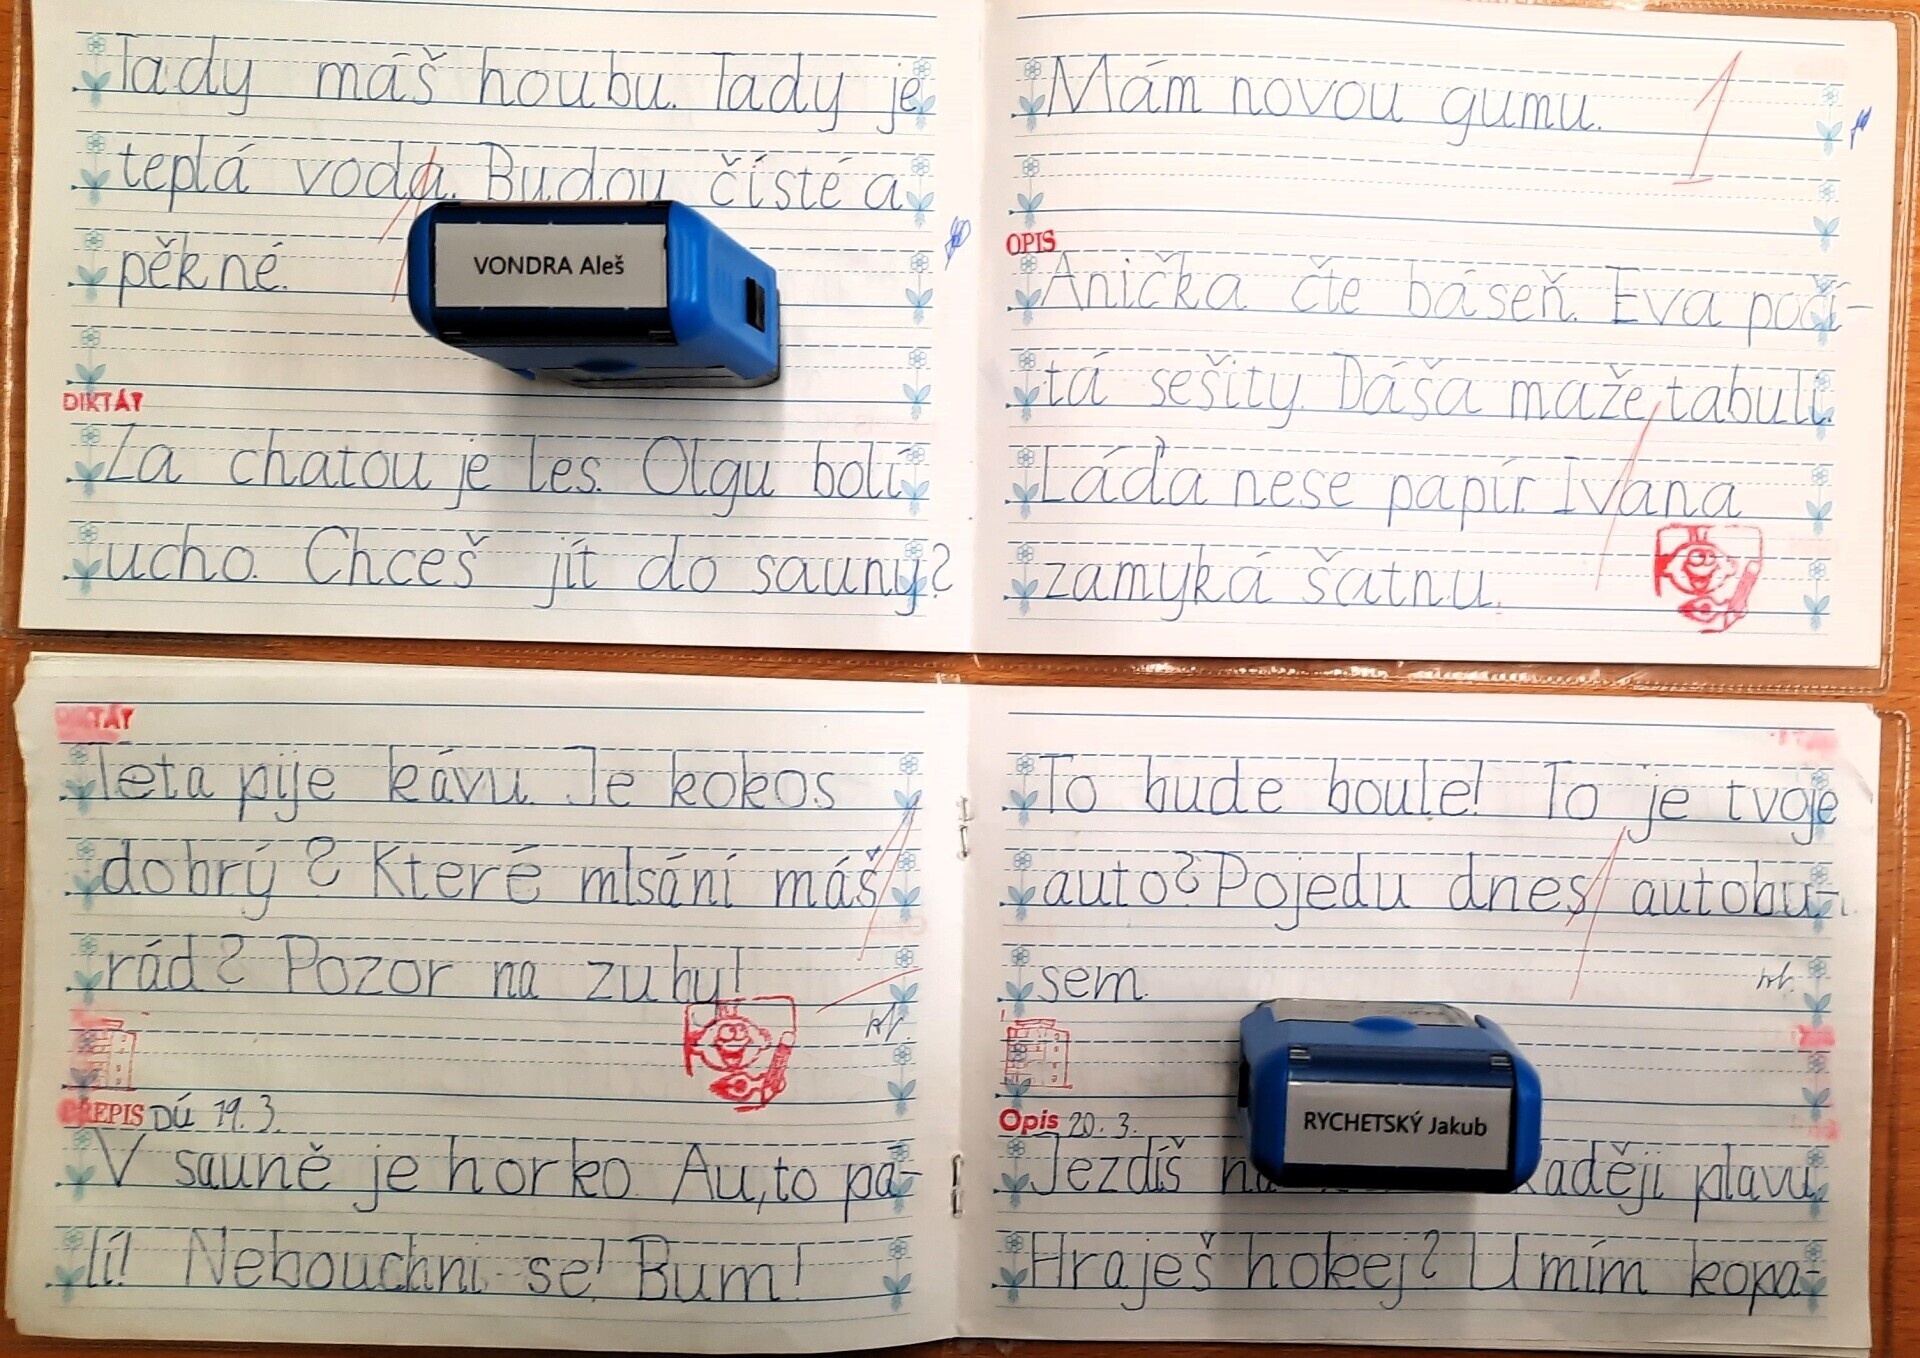 Tady máš houbu. Tady je
teplá voda. Budou čisté a
pěkné.
VONDRA Aleš
DIKTÁT
Za chatou je les. Olgu bolí
ucho. Chceš jít do sauny?
Mám novou gumu.
1
OPIS
Anička čte báseň. Eva počí-
tá sešity. Dáša maže tabuli.
Láďa nese papír. Ivana
zamyká šatnu.
DIKTÁT
Teta pije kávu. Je kokos
dobrý? Které mlsání máš
rád? Pozor na zuby!
PŘEPIS DÚ 19.3.
V sauně je horko. Au, to pá-
lí! Nebouchni se! Bum!
To bude boule! To je tvoje
auto? Pojedu dnes autobu-
sem.
Opis 20.3.
RYCHETSKÝ Jakub
Jezdíš raději plavu.
Hraješ hokej? Umím kopa-